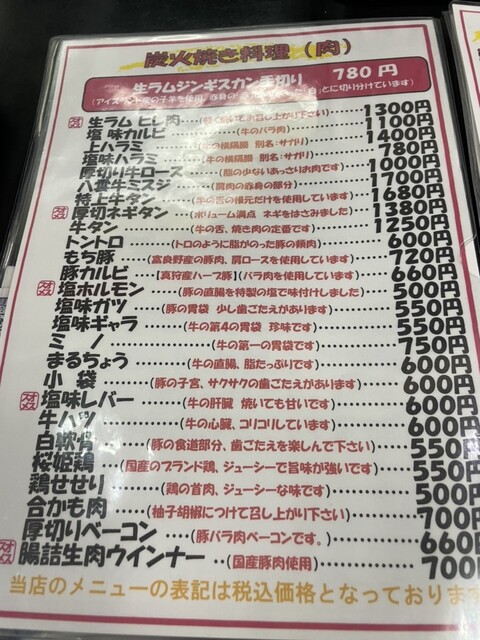 炭火焼き料理（肉）
生ラムジンギスカン手切り 780円
生ラム ヒレ肉 1300円
塩味カルビ (牛のバラ肉) 1100円
上ハラミ (牛の横隔膜 別名:サガリ) 1400円
塩味ハラミ (牛の横隔膜 別名:サガリ) 780円
厚切り牛ロース (脂の少ないあっさりお肉です) 1000円
八雲牛ミスジ (肩肉の赤身の部分) 1700円
特上牛タン (牛の舌の根元だけを使用しています) 1680円
オススメ 厚切ネギタン (ボリューム満点 ネギをはさみました) 1380円
牛タン (牛の舌、焼き肉の定番です) 1250円
トントロ (トロのように脂がのった豚の頬肉) 600円
もち豚 (富良野産の豚肉、肩ロースを使用しています) 720円
豚カルビ (【真狩産ハーブ豚】バラ肉を使用しています) 660円
オススメ 塩ホルモン (豚の直腸を特製の塩で味付けしました) 500円
塩味ガツ (豚の胃袋 少し歯ごたえがあります) 550円
塩味ギャラ (牛の第4の胃袋 珍味です) 550円
ミノ (牛の第一の胃袋です) 750円
まるちょう (牛の直腸、脂たっぷりです) 600円
小袋 (豚の子宮、サクサクの歯ごたえがあります) 600円
オススメ 塩味レバー (牛の肝臓 焼いても甘いです) 600円
牛ハツ (牛の心臓、コリコリしています) 600円
白軟骨 (豚の食道部分、歯ごたえを楽しんで下さい) 550円
桜姫鶏 (国産のブランド鶏、ジューシーで旨味が強いです) 550円
鶏せせり (鶏の首肉、ジューシーな味です) 500円
合かも肉 (柚子胡椒につけて召し上がり下さい) 700円
厚切りベーコン (豚バラ肉ベーコンです。) 660円
オススメ 腸詰生肉ウインナー (国産豚肉使用) 700
当店のメニューの表記は税込価格となっております